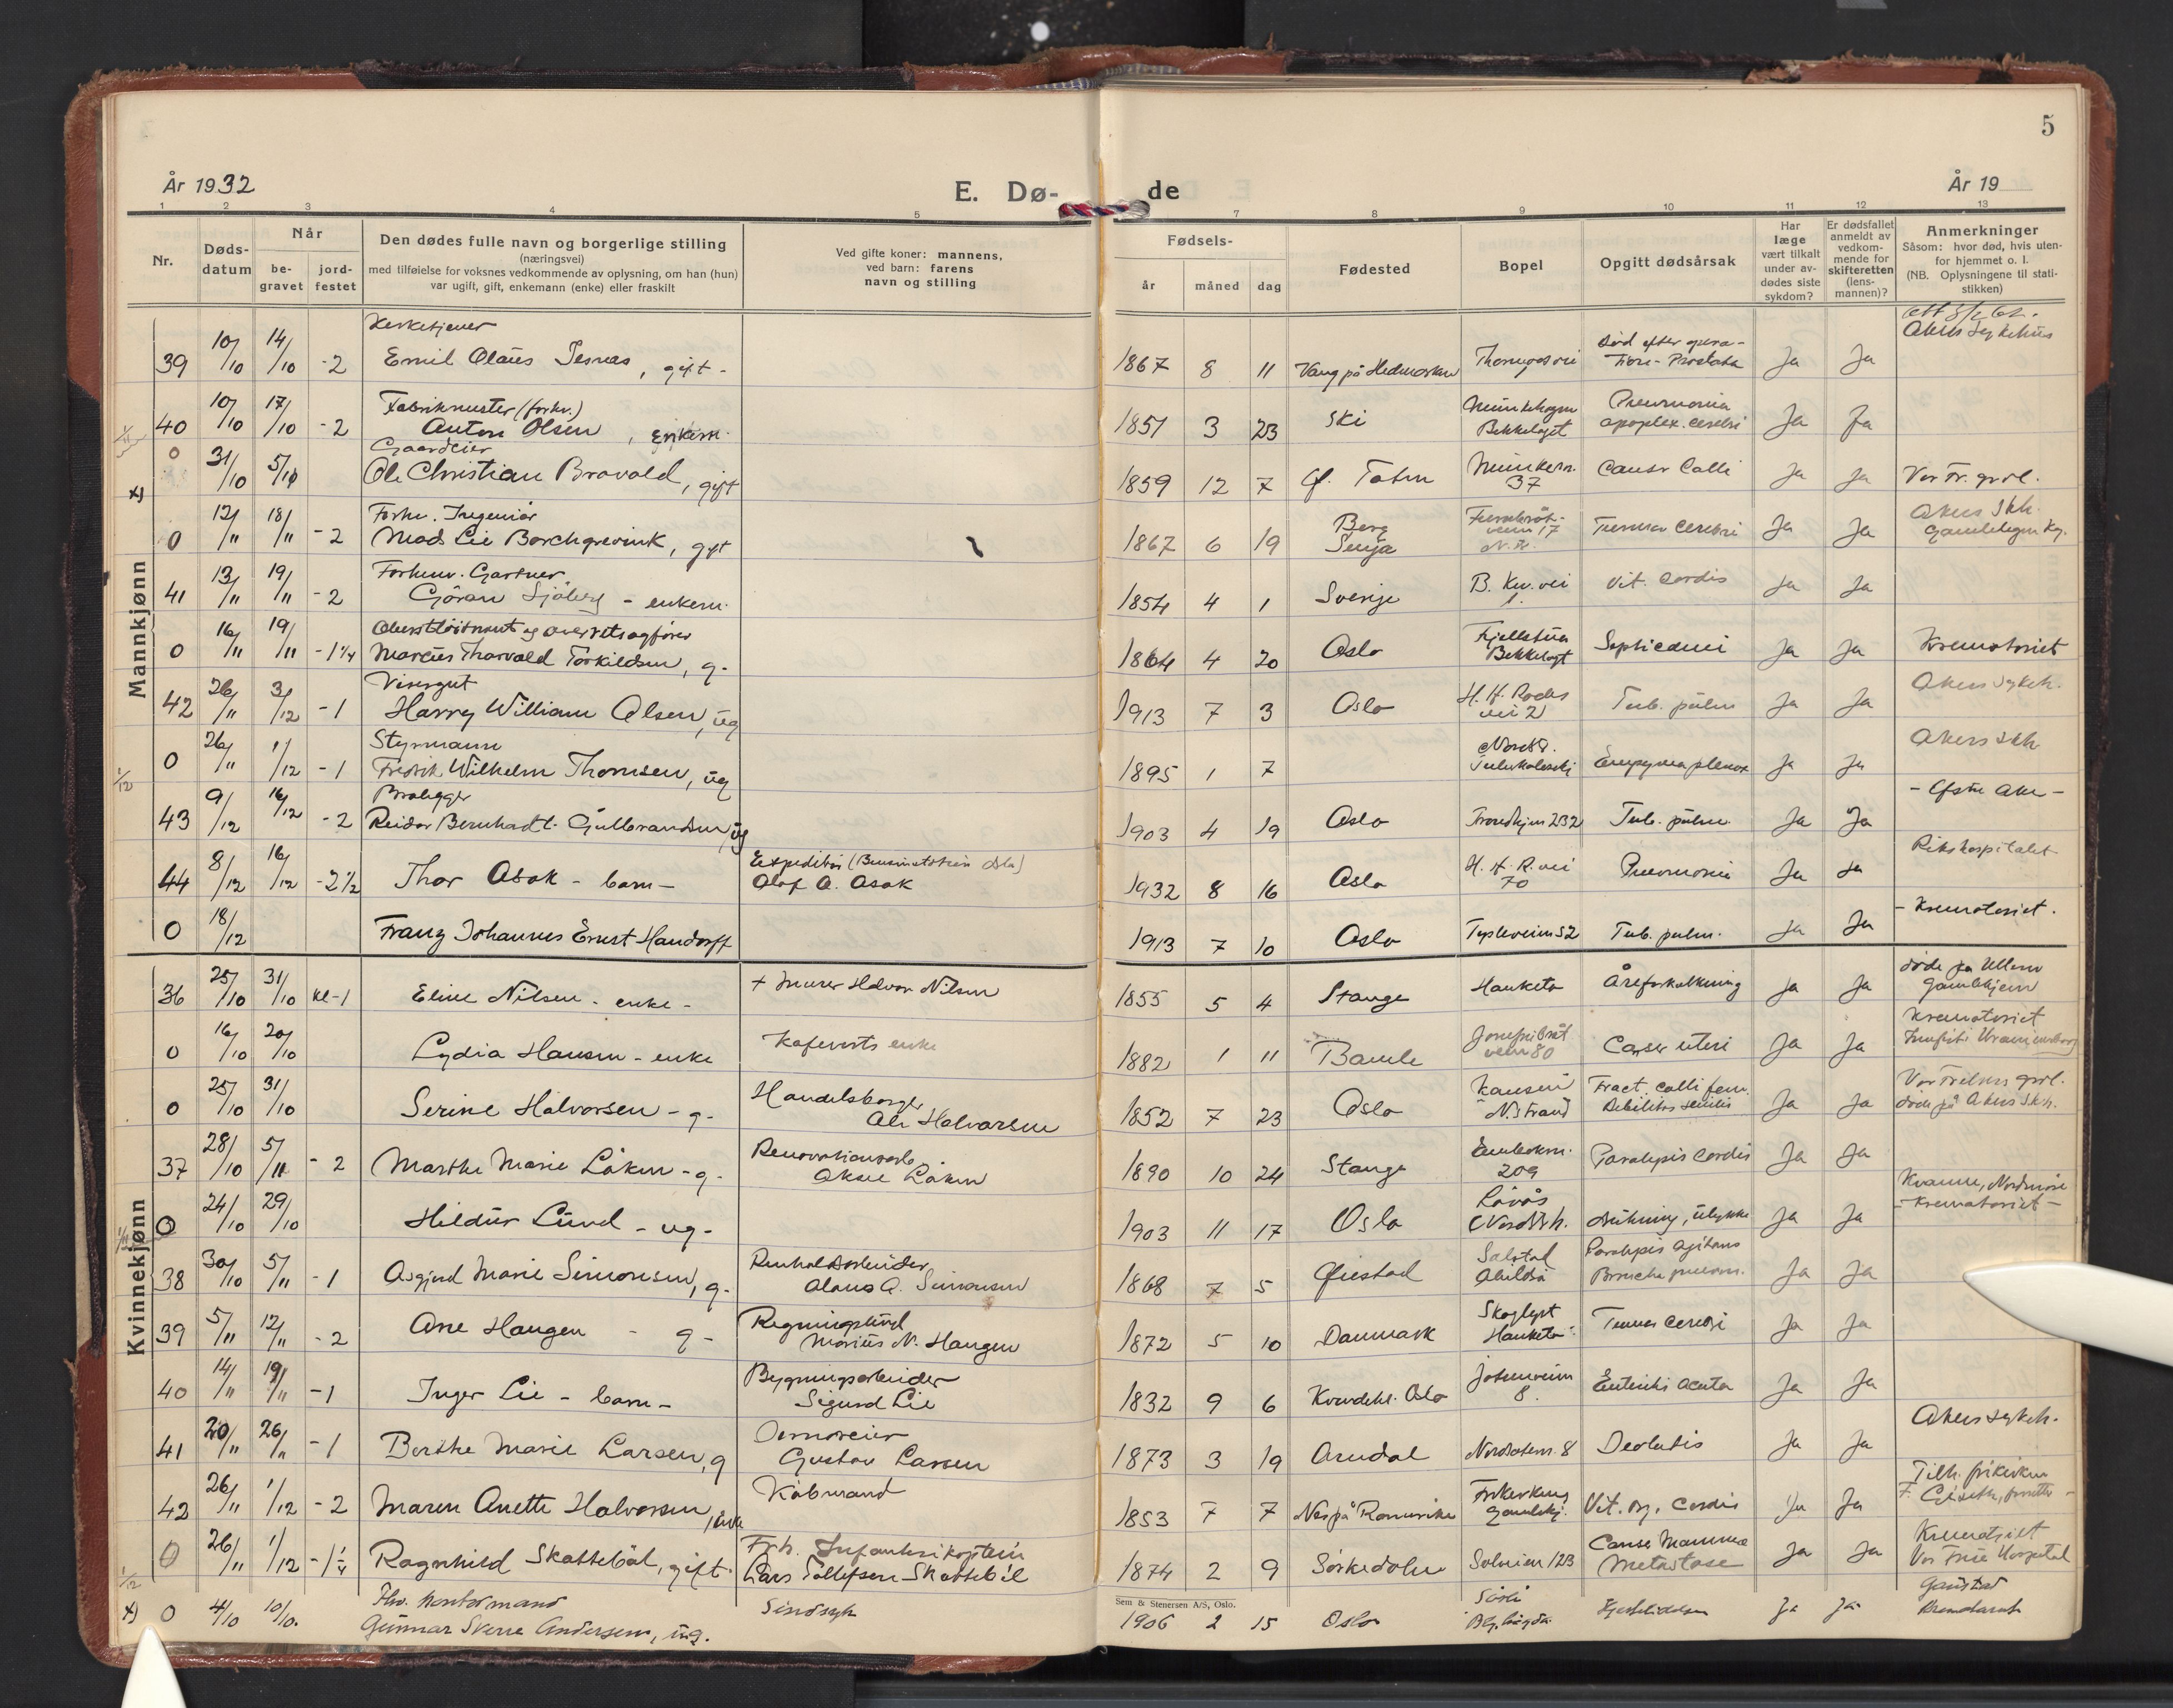 5
År 1932
E. Dø-
de
År 19
1 2 3 4 5 7 8 9 10 11 12 13
Nr.
Døds-
datum
Når
be-
gravet
jord-
festet
Den dødes fulle navn og borgerlige stilling
(næringsvei)
med tilføielse for voksnes vedkommende av oplysning, om han (hun)
var ugift, gift, enkemann (enke) eller fraskilt
Ved gifte koner: mannens,
ved barn: farens
navn og stilling
Fødsels-
år
måned
dag
Fødested
Bopel
Opgitt dødsårsak
Har
læge
vært tilkalt
under av-
dødes siste
sykdom?
Er dødsfallet
anmeldt av
vedkom-
mende for
skifteretten
(lens-
mannen)?
Anmerkninger
Såsom: hvor død, hvis uten-
for hjemmet o. l.
(NB. Oplysningene til stati-
stikken)
Mannkjønn
Kirketjener
Akers Sykehus
39 10/10 14/10 -2 Emil Olaus , gift - 1867 8 11 Vang på Hedmarken Død efter opera-
tion - Prostata Ja Ja
Fabrikmester (forhv.)
40 10/10 17/10 -2 Anton Olsen, enkem. 1851 3 23 Ski Bekkelaget Pneumonia
apoplex. cerebri Ja Ja
Gaardeier
x) 0 31/10 Ole Christian Bravold, gift 1859 12 7 37 Cancer Ja Ja Vor Fr. grvl.
Forhv. Ingeniør
0 12/" 18/" -2 Mads Lie Borchgrevink, gift 1867 6 19 Berg
Senja Tumor cerebri Ja Ja Akers Skh.
Forhenv. Gartner
41 13/" 19/" -2 Göran Sjöberg - enkem. 1854 4 1 Sverige B. Kv. vei
1. Vit. Cordis Ja Ja
Oberstløitnant og overretssagfører
0 16/" 19/" -1¼ Marcus Thorvald Torkildsen, g. 1864 4 20 Oslo Fjellstua
Bekkelagt Septicemi Ja Ja Krematoriet
Visergut
42 26/" 3/12 -1 Harry William Olsen, ug 1913 7 3 Oslo H. H. Rodes
vei 2 Tub. pulm Ja Ja Akers Sykeh.
Styrmann
0 26/" 1/12 -1 Fredrik Wilhelm Thomsen, ug 1895 1 7 Nordstr. Empyema pleurae Ja Ja Akers Skh
Brolegger
43 9/12 16/12 -2 Reidar Bernhardt Gulbrandsen, ug 1903 4 19 Oslo Trondhjem 232 Tub. pulm. Ja Ja - Østre Aker -
44 8/12 16/12 -2½ Thor Asak - barn - Expeditør
Olaf A. Asak 1932 8 16 Oslo H. H. R. vei
70 Pneumonia Ja Ja Rikshospitalet
0 18/12 Franz Johannes Ernst Handorff 1913 7 10 Oslo Tub. pulm. Ja Ja - Krematoriet.
Kvinnekjønn
36 25/10 31/10 kl-1 Eline Nilsen - enke - + murer Halvor Nilsen 1855 5 4 Stange Hauketo Åreforkalkning Ja Ja døde på Ullern
Gamlehjem
0 16/10 20/10 Lydia Hansen - enke enke 1882 1 11 Bamle Josefinbråt
veien 80 Cancer uteri Ja Ja Krematoriet
0 25/10 31/10 Serine Halvorsen - g. Handelsborger
Ole Halvorsen 1852 7 23 Oslo N.Strand Fract. colli fem.
Debilitas senilis Ja Ja Vor Frelsers grvl.
døde på Akers Skh.
37 28/10 5/11 -2 Marthe Marie Låken - g. Renovationsarb.
Låken 1890 10 24 Stange 209 Paralysis Cordis Ja Ja
0 24/10 29/10 Hildur Lund - ug - 1903 11 17 Oslo Nordstr. Drukning, ulykke Ja Ja Kvanne, Nordmøre
- Krematoriet -
38 30/10 5/11 -1 Asgjerd Marie Simonsen, g. Renholdsarbeider
Simonsen 1868 7 5 Paralysis agitans
Broncho pneum. Ja Ja
39 5/" 12/" -2 Ane Haugen - g -
Marius N. Haugen 1872 5 10 Danmark Skoglyst
Hauketo Tumor Cerebri Ja Ja
40 14/" 19/" -1 Inger Lie - barn - Bygningsarbeider
Sigurd Lie 1832 9 6 Kvindekl. Oslo 8. Enteritis acuta Ja Ja
41 20/" 26/" -1 Berthe Marie Larsen, g
Gustav Larsen 1873 3 19 Arendal 8 Ja Ja Akers Sykeh.
42 26/" 1/12 -2 Maren Anette Halvorsen, enke Købmand 1853 7 7 Nes på Romerike Vit. org. Cordis Ja Ja
0 26/" 1/12 -1¼ Ragnhild Skattebøl, gift Fhv. Infanterikaptein
Lars Tollefsen Skattebøl 1874 2 9 Sørkedalen Solveien 123 Cancer Mammae
Metastase Ja Ja Krematoriet
Vor Frue Hospital
Fhv. Kontormand
x) 0 4/10 10/10. Gunnar Skerre Andersen, ug. Sindssyk 1906 2 15 Oslo Ja Ja Gaustad
Sem & Stenersen A/S, Oslo.